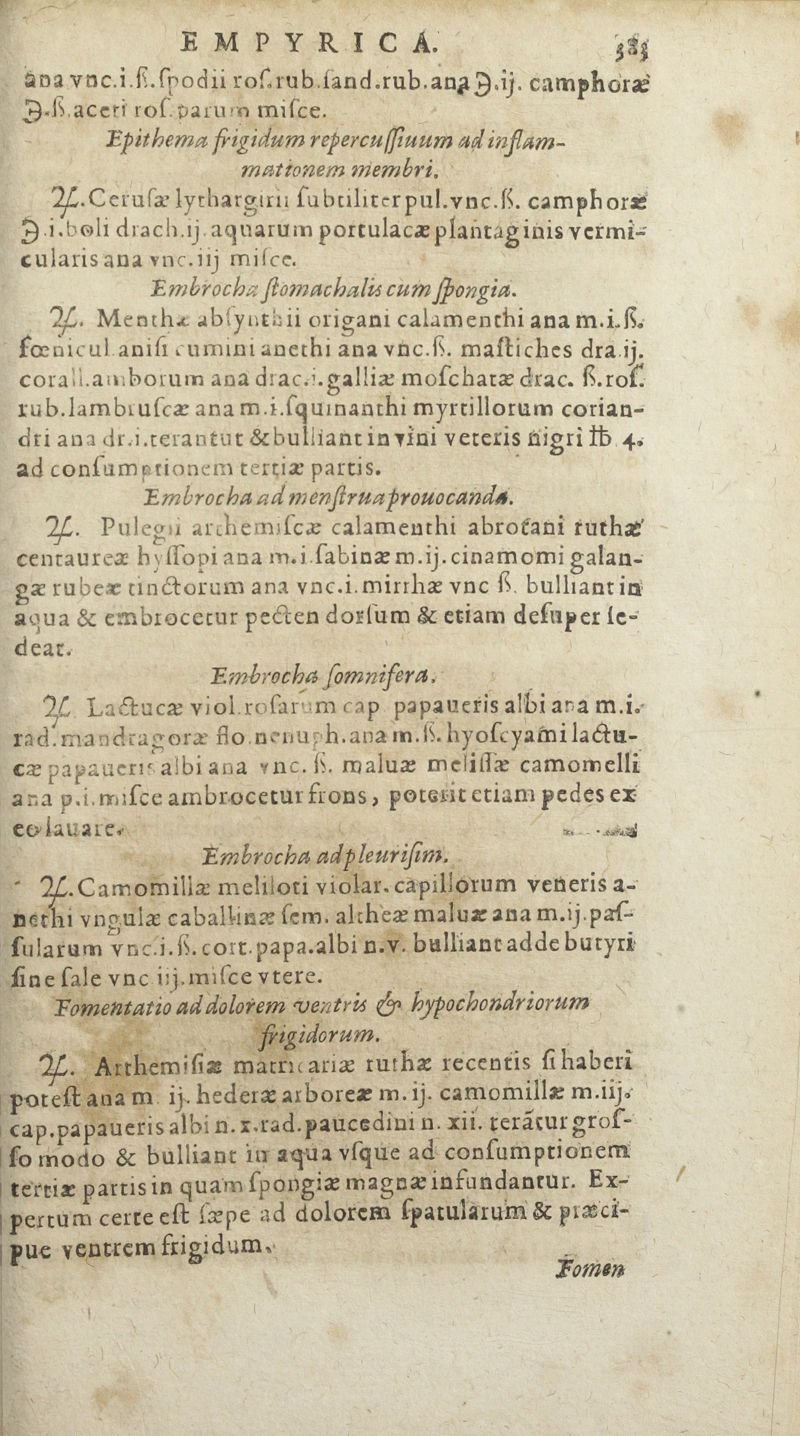 EMPYRICA.
ana vnc.i.ß.ſpodii roſ.rub.ſand.rub.ana ℈.ij. camphoræ
℈.ß.aceti roſ.parum miſce.
Epithema frigidum repercuſſiuum ad inflam-
mationem membri.
℞.Ceruſæ lythargirii ſubtiliter pul.vnc.ß. camphoræ
℈.i.boli drach.ij.aquarum portulacæ plantaginis vermi-
cularis ana vnc.iij miſce.
Embrocha ſtomachalis cum ſpongia.
℞. Menthæ abſynthii origani calamenthi ana m.i.ß.
fœnicul.aniſi cumini anethi ana vnc.ß. maſtiches dra.ij.
corall.amborum ana drac.i.galliæ moſchatæ drac. ß.roſ.
rub.lambruſcæ ana m.i.ſquinanthi myrtillorum corian-
dri ana dr.i.terantut & bulliant in vini veteris nigri ℔ 4.
ad conſumptionem tertiæ partis.
Embrocha ad menſtrua prouocanda.
℞. Pulegii arthemiſcæ calamenthi abrotani ruthæ
centaureæ hyſſopi ana m.i.ſabinæ m.ij.cinamomi galan-
gæ rubeæ tinctorum ana vnc.i.mirrhæ vnc ß. bulliant in
aqua & embrocetur pecten dorſum & etiam deſuper ſe-
deat.
Embrocha ſomnifera.
℞ Lactucæ viol.roſarum cap papaueris albi ana m.i.
rad.mandragoræ flo.nenuph.ana m.ß.hyoſcyami lactu-
cæ papaueris albi ana vnc.ß. maluæ meliſſæ camomelli
ana p.i.miſce ambrocetur frons, poterit etiam pedes ex
eo lauare.
Embrocha ad pleuriſim.
℞.Camomillæ meliloti violar.capillorum veneris a-
nethi vngulæ caballinæ ſem. altheæ maluæ ana m.ij.paſ-
ſularum vnc.i.ß.cort.papa.albi n.v. bulliant adde butyri
ſine ſale vnc iij.miſce vtere.
Fomentatio ad dolorem ventris & hypochondriorum
frigidorum.
℞. Arthemiſiæ matricariæ ruthæ recentis ſi haberi
poteſt ana m ij. hederæ arboreæ m.ij. camomillæ m.iij.
cap.papaueris albi n.x.rad.paucedini n. xii. terātur groſ-
ſo modo & bulliant in aqua vſque ad conſumptionem
tertiæ partis in quam ſpongiæ magnæ infundantur. Ex-
pertum certe eſt ſæpe ad dolorem ſpatularum & præci-
pue ventrem frigidum.
Fomen